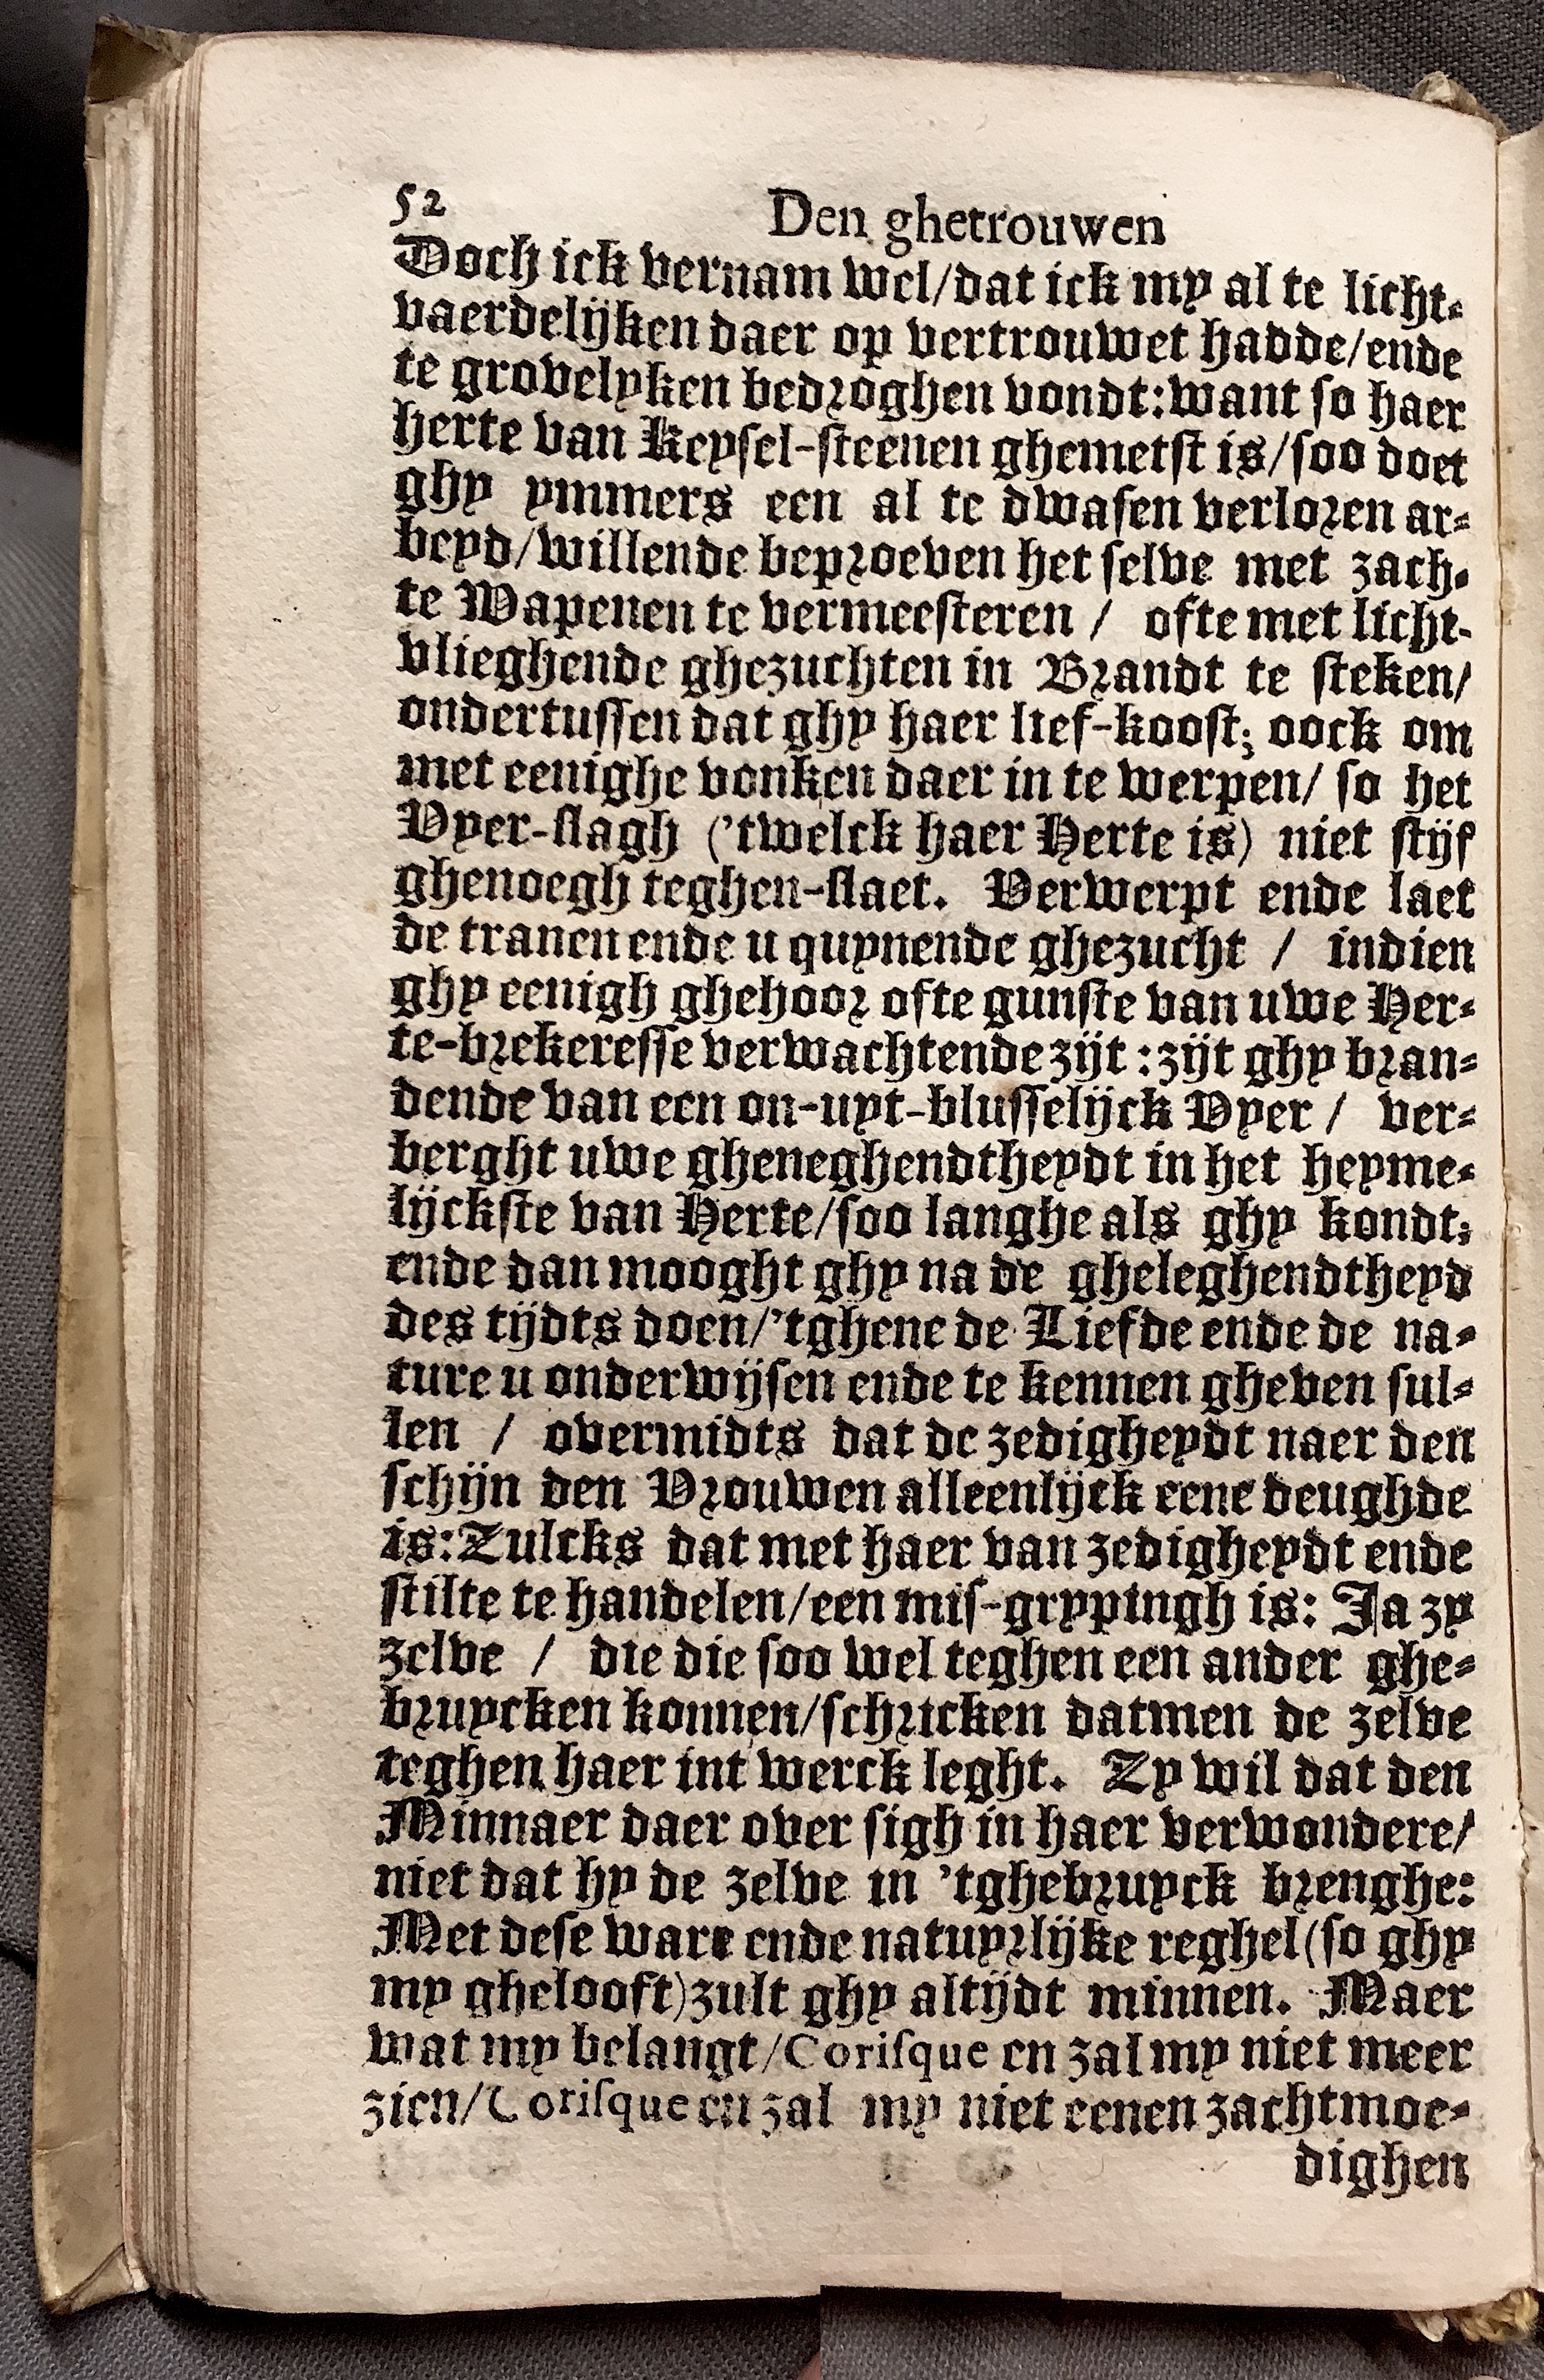 52 Den ghetrouwen
Doch ick vernam wel/dat ick my al te licht-
vaerdelijken daer op vertrouwet hadde/ende
te grovelyken bedroghen vondt:want so haer
herte van Keysel-steenen ghemetst is/soo doet
ghy ymmers een al te dwasen verloren ar-
beyd/willende beproeven het selve met zach-
te Wapenen te vermeesteren / ofte met licht-
vlieghende ghezuchten in Brandt te steken/
ondertussen dat ghy haer lief-koost; oock om
met eenighe vonken daer in te werpen/ so het
Vyer-slagh ('twelck haer Herte is) niet stijf
ghenoegh teghen-slaet. Verwerpt ende laet
de tranen ende u quynende ghezucht / indien
ghy eenigh ghehoor ofte gunste van uwe Her-
te-brekeresse verwachtende zijt : zijt ghy bran-
dende van een on-uyt-blusselijck Vyer / ver-
berght uwe gheneghendtheydt in het heyme-
lijckste van Herte/soo langhe als ghy kondt;
ende dan mooght ghy na de gheleghendtheyd
des tijdts doen/'tghene de Liefde ende de na-
ture u onderwijsen ende te kennen gheven sul-
len / overmidts dat de zedigheydt naer den
schijn den Vrouwen alleenlijck eene deughde
is:Zulcks dat met haer van zedigheydt ende
stilte te handelen/een mis-grypingh is: Ja zy
zelve / die die soo wel teghen een ander ghe-
bruycken konnen/schricken datmen de zelve
teghen haer int werck leght. Zy wil dat den
Minnaer daer over sigh in haer verwondere/
niet dat hy de zelve in 'tghebruyck brenghe:
Met dese ware ende natuyrlijke reghel(so ghy
my ghelooft)zult ghy altijdt minnen. Maer
wat my belangt/Corisque en zal my niet meer
zien/Corisque en zal my niet eenen zachtmoe-
dighen